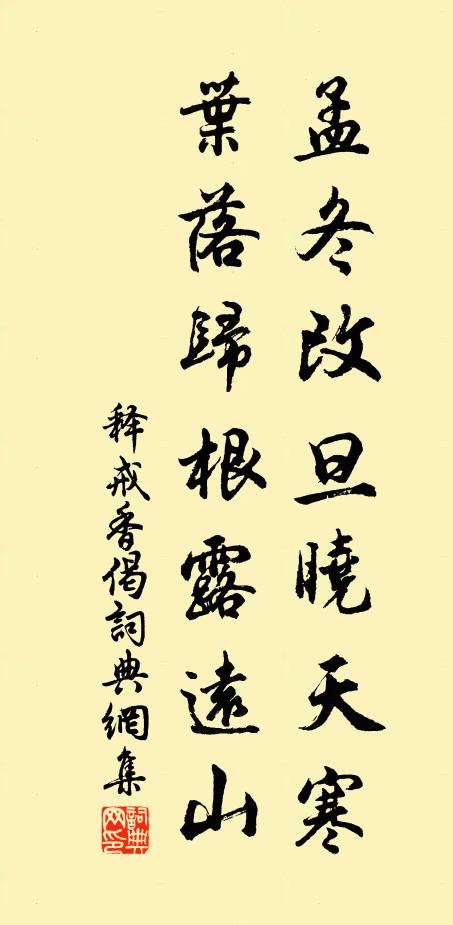 孟冬改旦曉天寒
葉落歸根露遠山
释戒香偈詞典網集
詞典网印